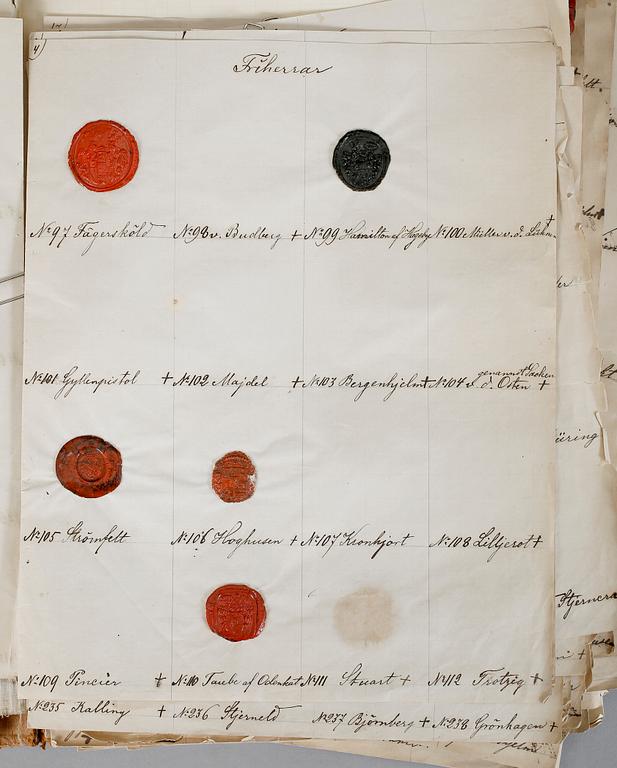 4
Friherrar
№97 Fägersköld №98 v. Budberg + №99 Hamilton af Hageby №100 Müller v. d. +
№101 Gyllenpistol + №102 Majdel + №103 Bergenhjelm + №104 v. d. Osten genannt Sacken +
№105 Strömfelt №106 Hoghusen + №107 Kronhjort №108 Lilljerot +
№109 Pincier + №110 Taube af Odenkat №111 Stuart + №112 Trotzig +
№235 Kalling + №236 Stjerneld №237 Björnberg + №238 Grönhagen +